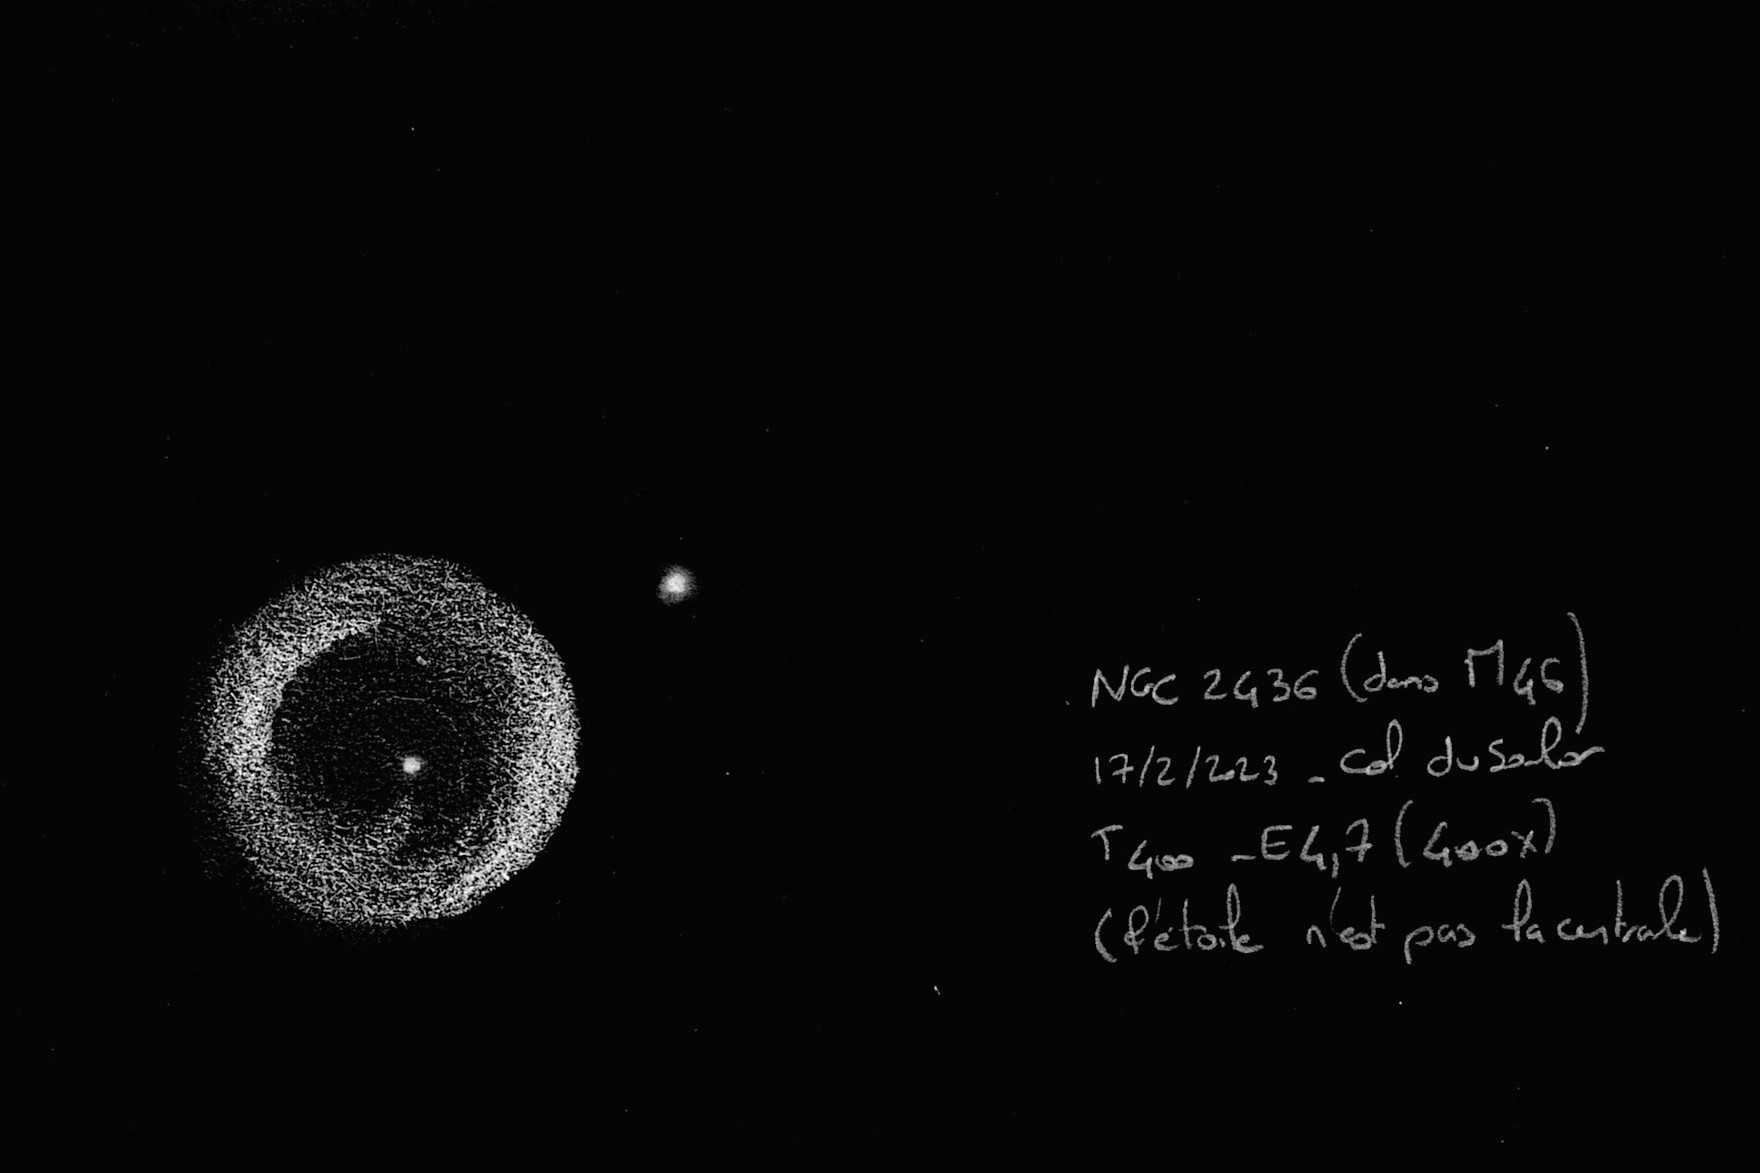 NGC 2436 (dans M46)
17/2/2023 - Col du Soulor
T400 - E4,7 (400x)
(l'étoile n'est pas la centrale)